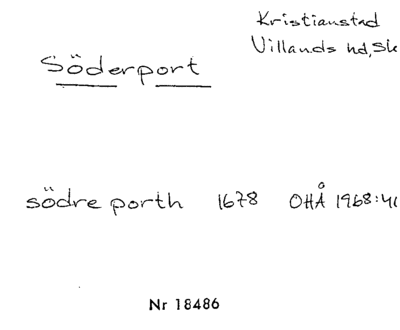 Kristianstad
Villands hd, Sk
Söderport
södre porth 1678 OHÅ 1968:40
Nr 18486